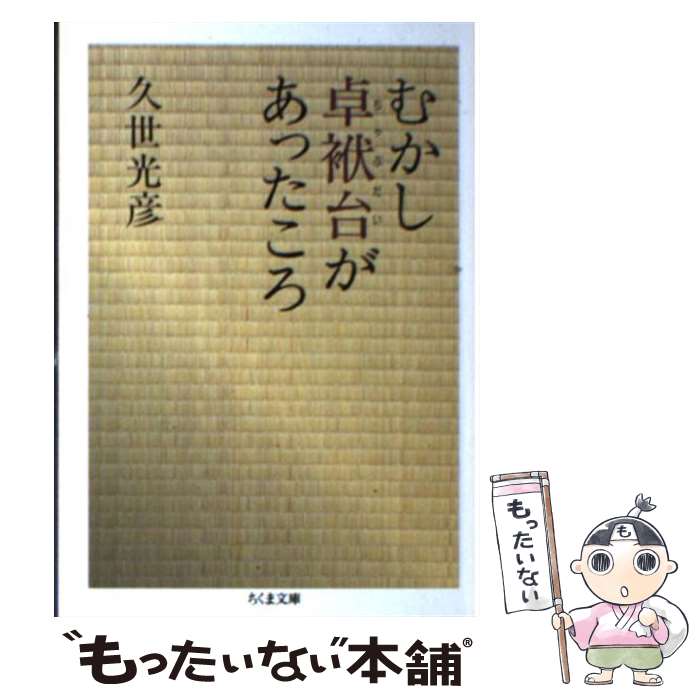 むかし
卓袱台が
ちゃぶだい
あったころ
久世光彦
ちくま文庫
もったいない
も
"もったいない"本舗®